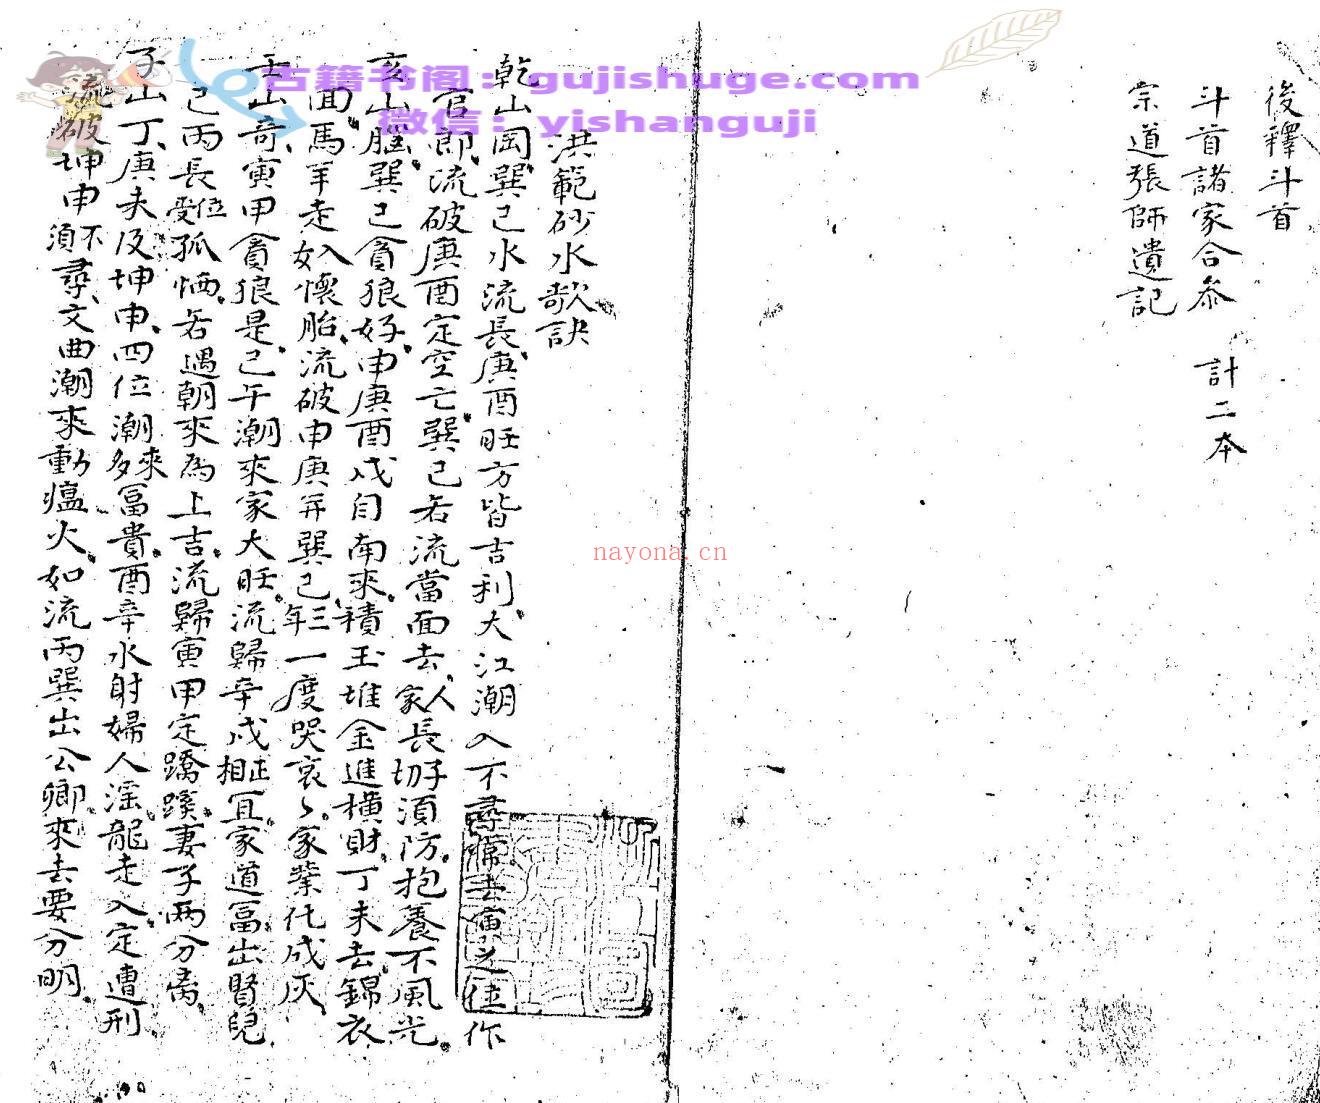 後釋斗首
斗首諸家合参 計二本
宗道張師遺記
洪範砂水歌訣
乾山岡巽巳水流長庚酉旺方皆吉利大江潮入不尋常去寅之位作
官郎流破庚酉定空亡巽巳若流當面去人家長切子須防抱養不風光
亥山脳巽巳貪狼好申庚酉戌自南來積玉堆金進横財丁未去錦衣
面馬羊走入如懷胎流破申庚并巽巳三年一度哭哀々家業化成灰
壬山奇寅甲貪狼是巳午潮來家大旺流歸辛戌相正宜家道冨出賢兒
巳丙長位受孤恓若遇朝來為上吉流歸寅甲定蹺蹊妻子两分离
子山丁庚未及坤申四位潮來多冨貴酉辛水射婦人淫龍走入定遭刑
流破坤申不須尋文曲潮來動瘟火如流丙巽出公卿來去要分明
古籍书阁：gujishuge.com
微信：yishanguji
nayona.cn